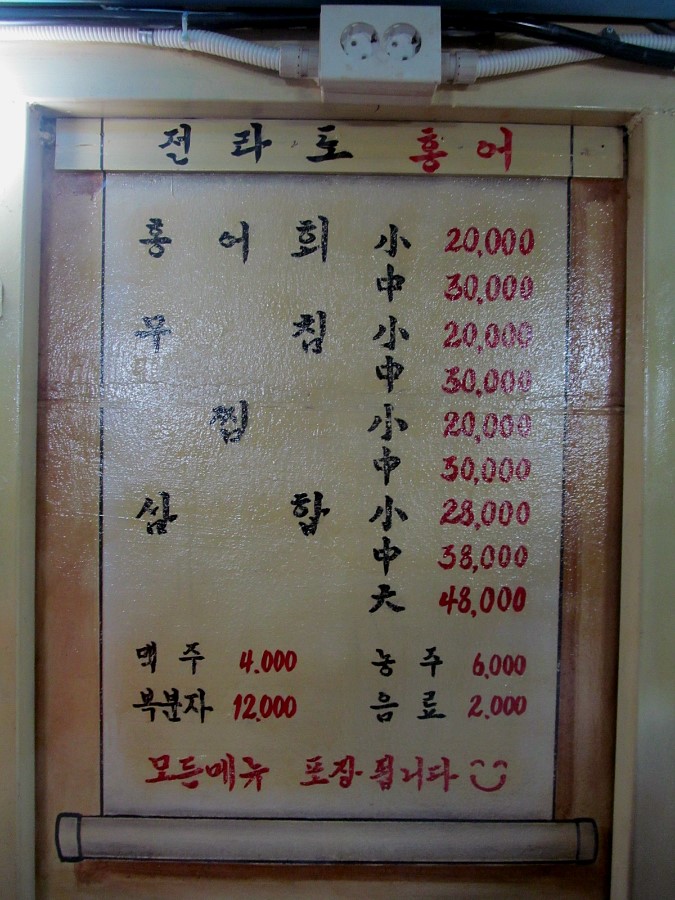 전라도 홍어
홍어회 小 20,000
中 30,000
무침 小 20,000
中 30,000
찜 小 20,000
中 30,000
삼합 小 28,000
中 38,000
大 48,000
맥주 4.000 농주 6,000
복분자 12,000 음료 2.000
모든메뉴 포장됩니다